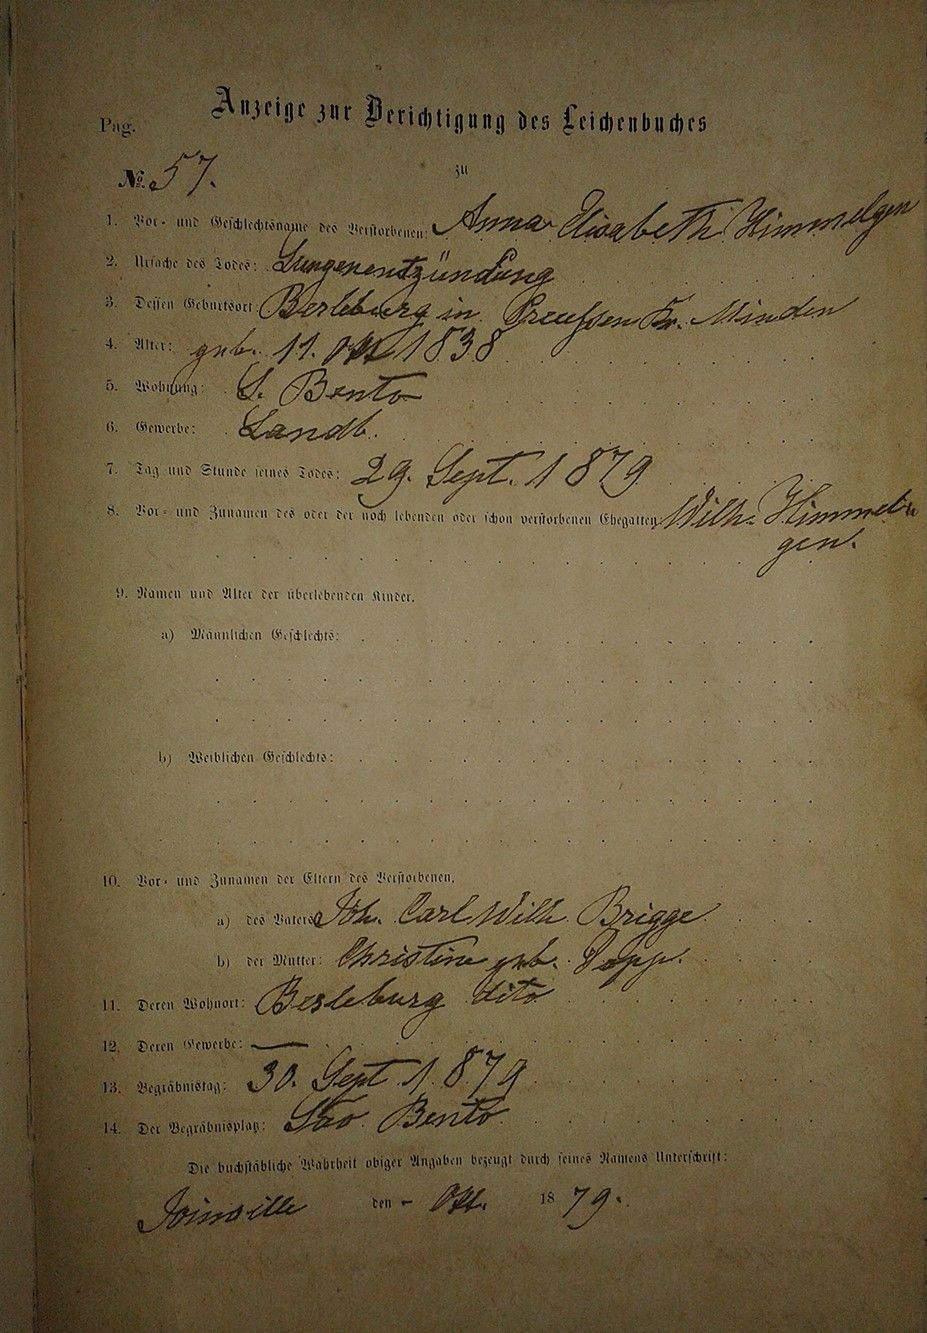 Anzeige zur Berichtigung des Leichenbuches
Pag.
zu
No. 57.
1. Vor- und Geschlechtsname des Verstorbenen: Anna Elisabeth Himmelgen
2. Ursache des Todes: Lungenentzündung
3. Dessen Geburtsort: Berleburg in Preussen Kr. Minden
4. Alter: geb. 11. Okt 1838
5. Wohnung: S. Bento
6. Gewerbe: Landb.
7. Tag und Stunde seines Todes: 29. Sept. 1879
8. Vor- und Zunamen des oder der noch lebenden oder schon verstorbenen Ehegatten: Wilh. Himmel-
gen.
9. Namen und Alter der überlebenden Kinder.
a) Männlichen Geschlechts:
b) Weiblichen Geschlechts:
10. Vor- und Zunamen der Eltern des Verstorbenen.
a) des Vaters: Joh. Carl Wilh. Brigge
b) der Mutter: Christine geb. Popp.
11. Deren Wohnort: Berleburg dito
12. Deren Gewerbe: —
13. Begräbnistag: 30. Sept 1879
14. Der Begräbnisplatz: São Bento
Die buchstäbliche Wahrheit obiger Angaben bezeugt durch seines Namens Unterschrift:
Joinville den - Okt. 1879.